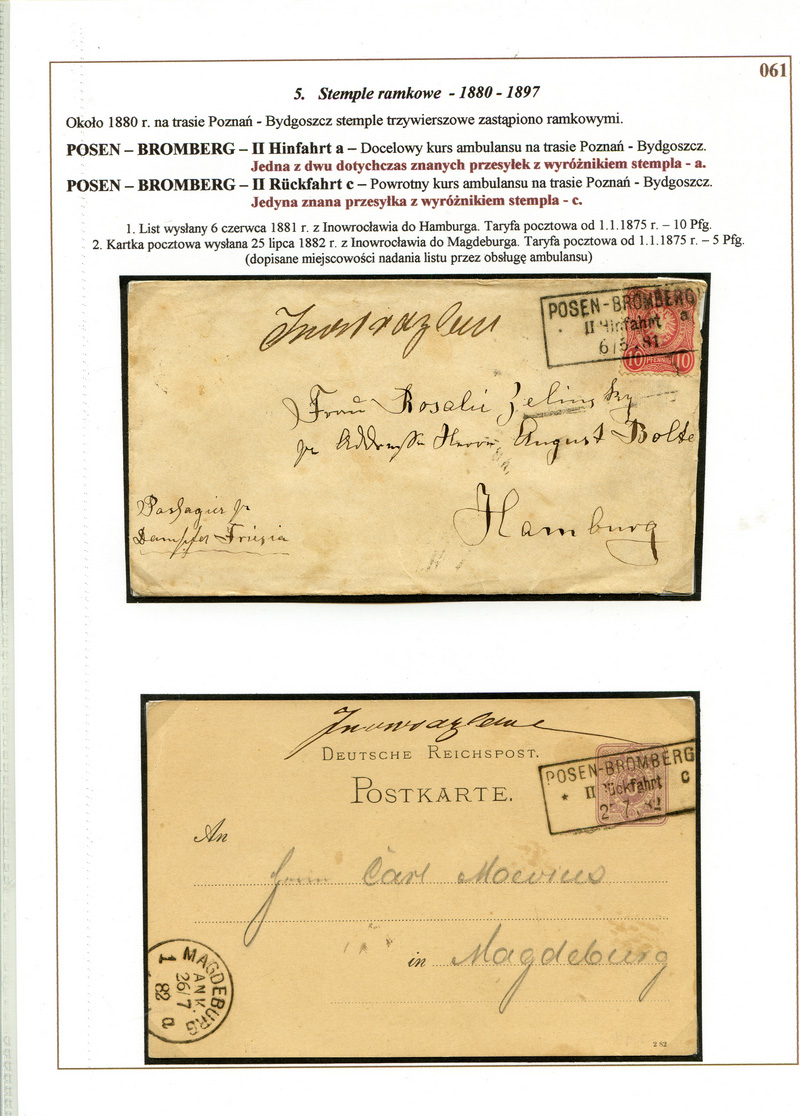 061
5. Stemple ramkowe - 1880 - 1897
Około 1880 r. na trasie Poznań - Bydgoszcz stemple trzywierszowe zastąpiono ramkowymi.
POSEN – BROMBERG – II Hinfahrt a – Docelowy kurs ambulansu na trasie Poznań - Bydgoszcz.
Jedna z dwu dotychczas znanych przesyłek z wyróżnikiem stempla - a.
POSEN – BROMBERG – II Rückfahrt c – Powrotny kurs ambulansu na trasie Poznań - Bydgoszcz.
Jedyna znana przesyłka z wyróżnikiem stempla - c.
1. List wysłany 6 czerwca 1881 r. z Inowrocławia do Hamburga. Taryfa pocztowa od 1.1.1875 r. – 10 Pfg.
2. Kartka pocztowa wysłana 25 lipca 1882 r. z Inowrocławia do Magdeburga. Taryfa pocztowa od 1.1.1875 r. – 5 Pfg.
(dopisane miejscowości nadania listu przez obsługę ambulansu)
Inowrazlaw
POSEN-BROMBERG
II Hinfahrt a
6/5 . 81
10 PFENNIG 10
Frau Rosalie Zelinsky
pr Addresse Herrn August Bolte
Hamburg
Passagier pr
Dampfer Frisia
Inowrazlaw
DEUTSCHE REICHSPOST.
POSTKARTE.
POSEN-BROMBERG
* II Rückfahrt c
25 7 . 82
An
Herrn Carl Moevius
in Magdeburg
MAGDEBURG
ANK.
26/7
82
1 a
2 82